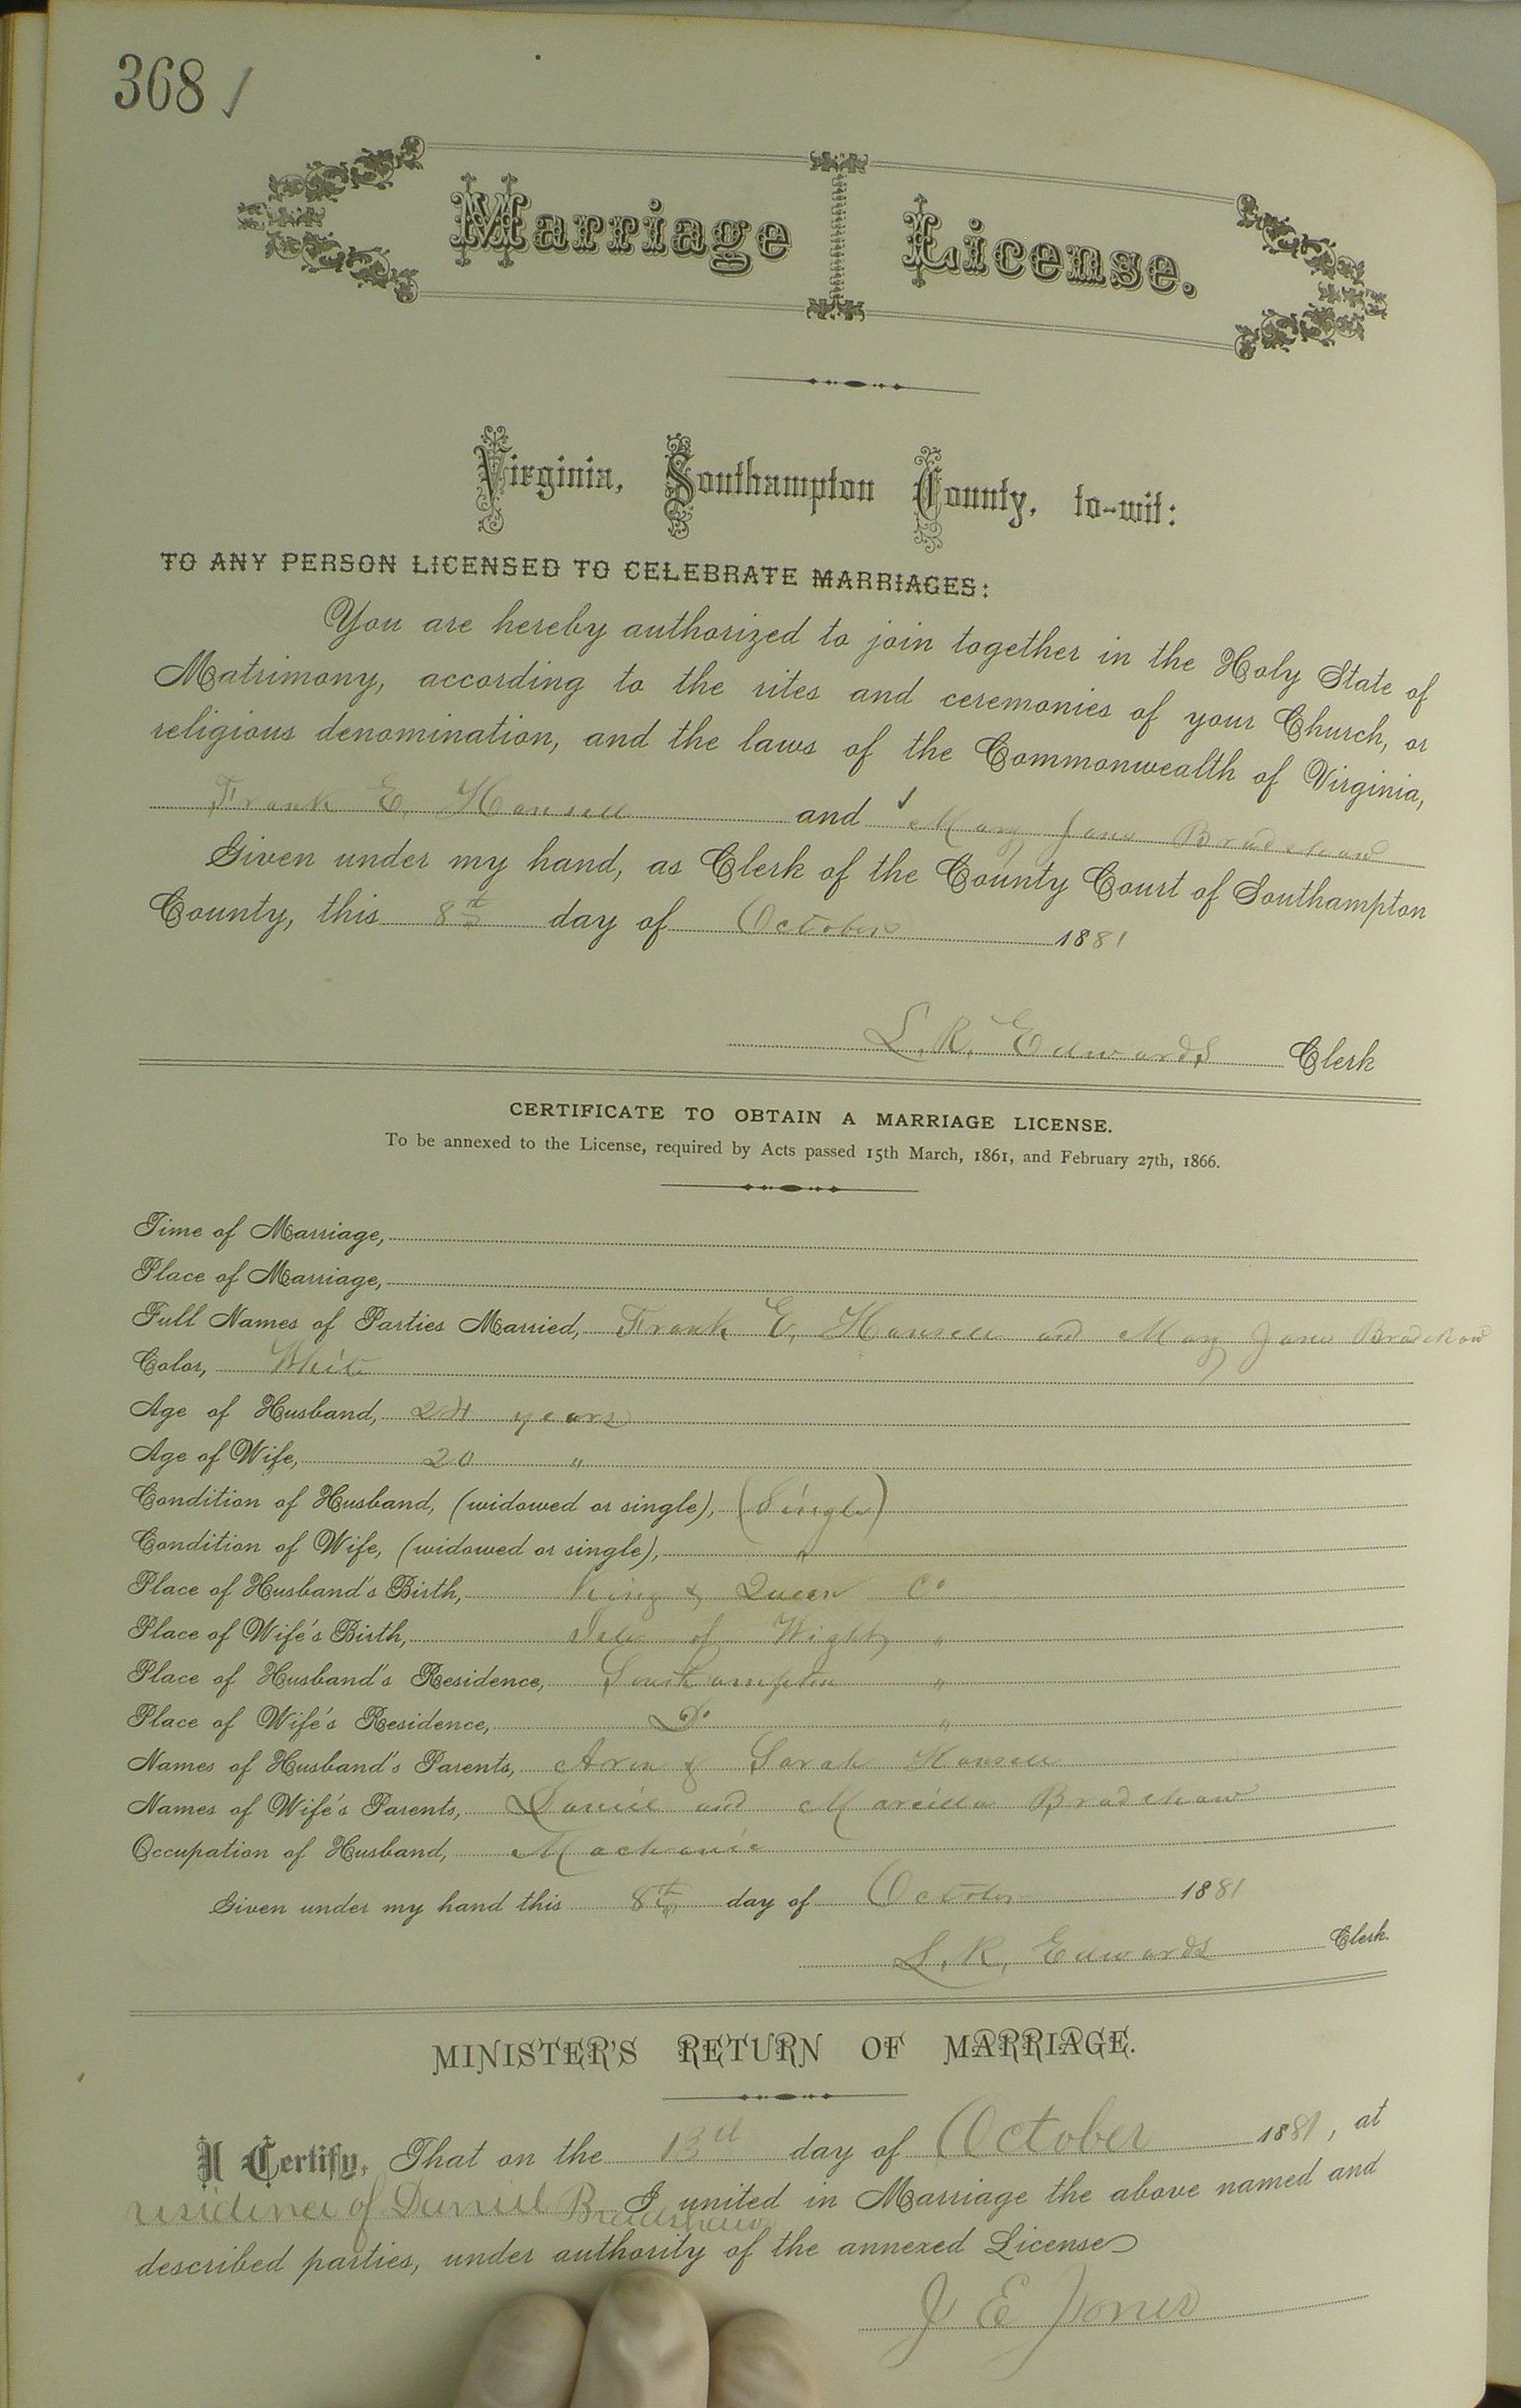 368 /
Marriage License.
Virginia, Southampton County, to-wit:
TO ANY PERSON LICENSED TO CELEBRATE MARRIAGES:
You are hereby authorized to join together in the Holy State of
Matrimony, according to the rites and ceremonies of your Church, or
religious denomination, and the laws of the Commonwealth of Virginia,
Frank E. and Mary Jane Bradshaw
Given under my hand, as Clerk of the County Court of Southampton
County, this 8th day of October 1881
L. R. Edwards Clerk
CERTIFICATE TO OBTAIN A MARRIAGE LICENSE.
To be annexed to the License, required by Acts passed 15th March, 1861, and February 27th, 1866.
Time of Marriage,
Place of Marriage,
Full Names of Parties Married, Frank E. and Mary Jane Bradshaw
Color, White
Age of Husband, 24 years
Age of Wife, 20 "
Condition of Husband, (widowed or single), (Single)
Condition of Wife, (widowed or single), "
Place of Husband's Birth, King & Queen Co
Place of Wife's Birth, Isle of Wight "
Place of Husband's Residence, Southampton "
Place of Wife's Residence, Do "
Names of Husband's Parents, & Sarah
Names of Wife's Parents, Daniel and Bradshaw
Occupation of Husband, Mechanic
Given under my hand this 8th day of October 1881
L. R. Edwards Clerk.
MINISTER'S RETURN OF MARRIAGE.
I Certify, That on the 13th day of October 1881, at
residence of Daniel Bradshaw I united in Marriage the above named and
described parties, under authority of the annexed License
J E Jones